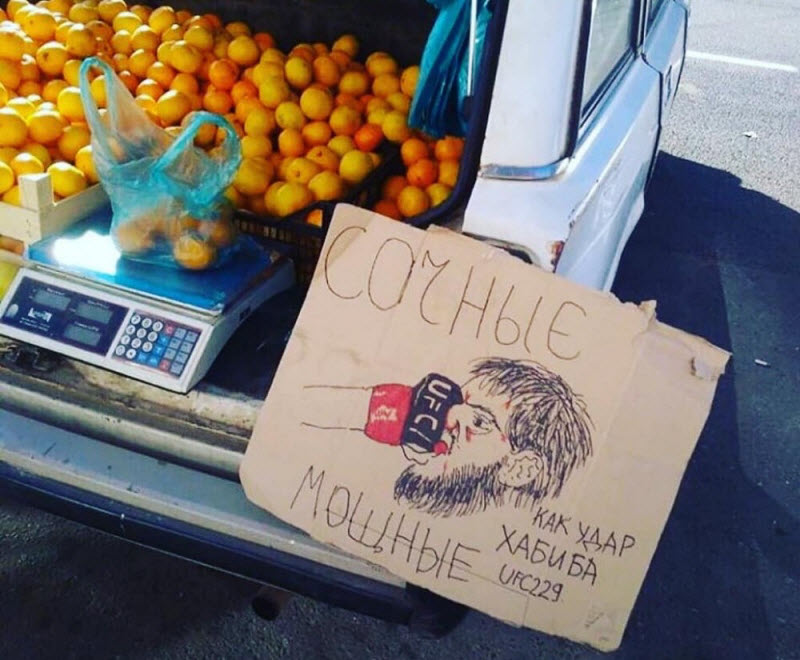 СОЧНЫЕ
UFC
МОЩНЫЕ
КАК УДАР
ХАБИБА
UFC229.